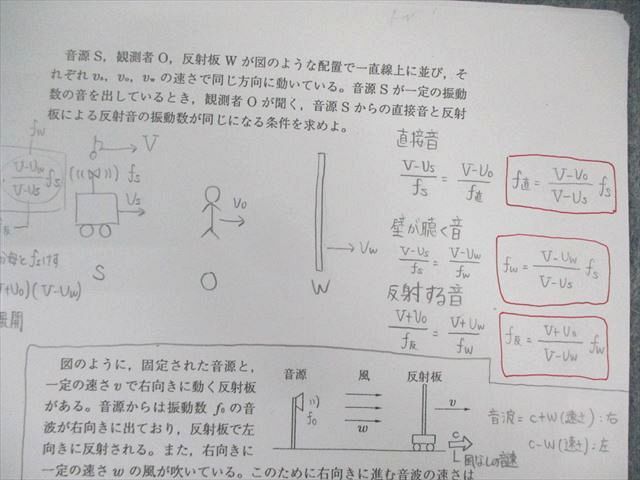 音源 S，観測者 O，反射板 W が図のような配置で一直線上に並び，そ
れぞれ vₛ，vₒ，v_w の速さで同じ方向に動いている。音源 S が一定の振動
数の音を出しているとき，観測者 O が聞く，音源 S からの直接音と反射
板による反射音の振動数が同じになる条件を求めよ。
fw
V-Us/V-Us fs
f反
分母とfsけす
V+U0)(V-Uw)
展開
V
fs
Us
S
U0
O
Uw
W
直接音
V-Us/fs = V-U0/f直
f直 = V-U0/V-Us fs
壁が聴く音
V-Us/fs = V-Uw/fw
fw = V-Uw/V-Us fs
反射する音
V+U0/f反 = V+Uw/fw
f反 = V+U0/V-Uw fw
図のように，固定された音源と，
一定の速さ v で右向きに動く反射板
がある。音源からは振動数 f₀ の音
波が右向きに出ており，反射板で左
向きに反射される。また，右向きに
一定の速さ w の風が吹いている。このために右向きに進む音波の速さは
音源
f₀
風
w
反射板
v
c
風なしの音速
音波 = c+w(速さ):右
c-w(速さ):左